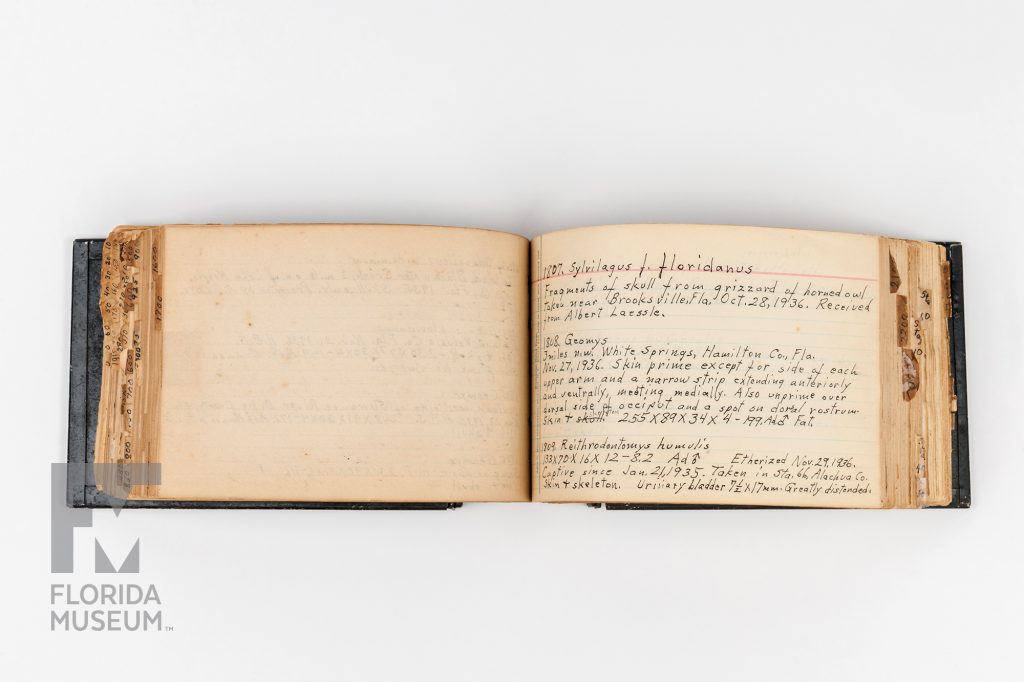 1807. Sylvilagus f. floridanus
Fragments of skull from grizzard of horned owl
Taken near Brooksville, Fla, Oct. 28, 1936. Received
from Albert Laessle.
1808. Geomys
3 miles n.w. White Springs, Hamilton Co., Fla.
Nov. 27, 1936. Skin prime except for side of each
upper arm and a narrow strip extending anteriorly
and ventrally, meeting medially. Also unprime over
dorsal side of occiput and a spot on dorsal rostrum.
Skin + skull. 255 X 89 X 34 X 4 - 199. Ad ♂ Fat.
1809. Reithrodontomys humulis
133 X 70 X 16 X 12 - 8.2 Ad ♂ Etherized Nov. 29, 1936.
Captive since Jan. 21, 1935. Taken in Sta. 66, Alachua Co.
Skin + skeleton. Urinary bladder 7½ X 17 mm. Greatly distended.
1600
1700
2200
FLORIDA
MUSEUM™